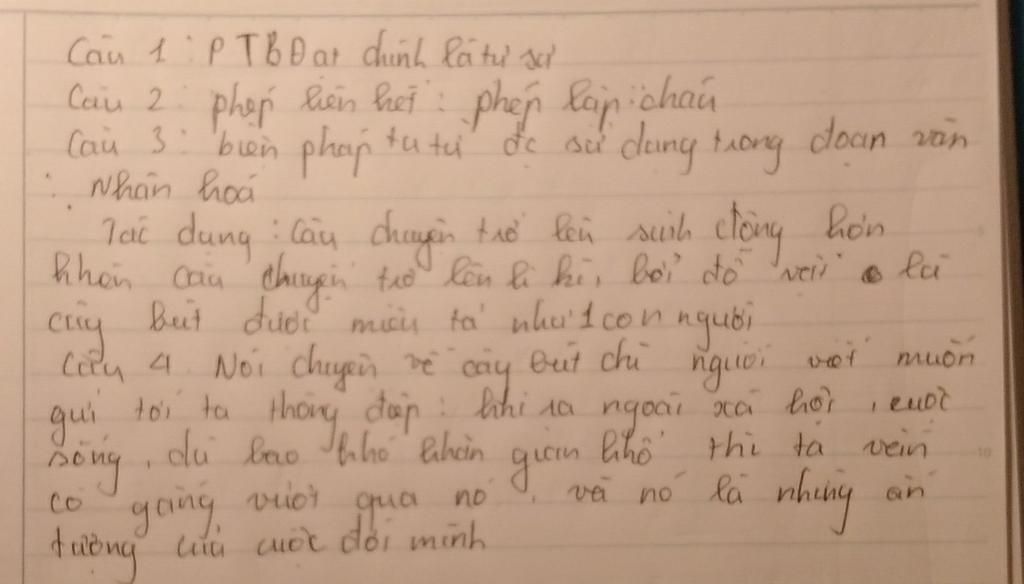 Câu 1: PTBĐạt chính là tự sự
Câu 2: phép liên kết: phép lặp: cháu
Câu 3: biện pháp tu từ đc sử dụng trong đoạn văn
: Nhân hoá
Tác dụng: Câu chuyện trở lên sinh động hơn
khiến câu chuyện trở lên li kì, bởi đồ vật là
cây bút được miêu tả như 1 con người
Câu 4. Nói chuyện về cây bút chì người viết muốn
gửi tới ta thông điệp: khi ra ngoài xã hội, cuộc
sống, dù bao khó khăn gian khổ thì ta vẫn
cố gắng vượt qua nó, và nó là những ấn
tượng của cuộc đời mình